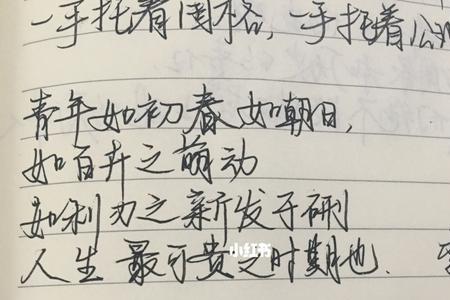 一手托着国格，一手托着公
青年如初春 如朝日，
如百卉之萌动
如利刃之新发于硎
人生最可贵之时期也．
小红书